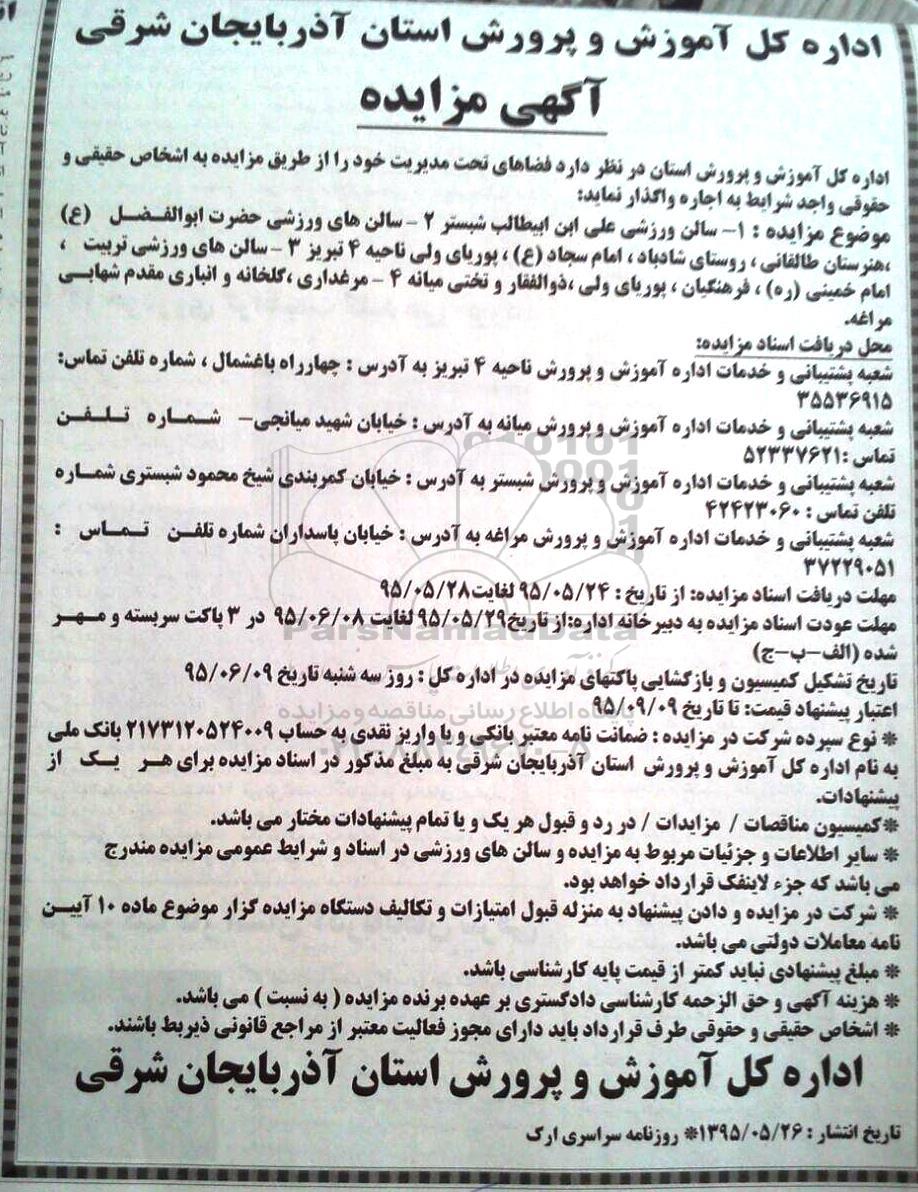 اداره کل آموزش و پرورش استان آذربایجان شرقی
آگهی مزایده
اداره کل آموزش و پرورش استان در نظر دارد فضاهای تحت مدیریت خود را از طریق مزایده به اشخاص حقیقی و
حقوقی واجد شرایط به اجاره واگذار نماید:
موضوع مزایده : ۱- سالن ورزشی علی ابن ابیطالب شبستر ۲ - سالن های ورزشی حضرت ابوالفضل (ع)
،هنرستان طالقانی ، روستای شادباد ، امام سجاد (ع) ، پوریای ولی ناحیه ۴ تبریز ۳ - سالن های ورزشی تربیت ،
امام خمینی (ره) ، فرهنگیان ، پوریای ولی ،ذوالفقار و تختی میانه ۴ - مرغداری ،گلخانه و انباری مقدم شهابی
مراغه.
محل دریافت اسناد مزایده:
شعبه پشتیبانی و خدمات اداره آموزش و پرورش ناحیه ۴ تبریز به آدرس : چهارراه باغشمال ، شماره تلفن تماس:
۳۵۵۳۶۹۱۵
شعبه پشتیبانی و خدمات اداره آموزش و پرورش میانه به آدرس : خیابان شهید میانجی- شماره تلفن
تماس :۵۲۳۳۷۶۲۱
شعبه پشتیبانی و خدمات اداره آموزش و پرورش شبستر به آدرس : خیابان کمربندی شیخ محمود شبستری شماره
تلفن تماس : ۴۲۴۲۳۰۶۰
شعبه پشتیبانی و خدمات اداره آموزش و پرورش مراغه به آدرس : خیابان پاسداران شماره تلفن تماس :
۳۷۲۲۹۰۵۱
مهلت دریافت اسناد مزایده: از تاریخ : ۹۵/۰۵/۲۴ لغایت۹۵/۰۵/۲۸
مهلت عودت اسناد مزایده به دبیرخانه اداره:از تاریخ۹۵/۰۵/۲۹ لغایت ۹۵/۰۶/۰۸ در ۳ پاکت سربسته و مهر
شده (الف-ب-ج)
تاریخ تشکیل کمیسیون و بازگشایی پاکتهای مزایده در اداره کل : روز سه شنبه تاریخ ۹۵/۰۶/۰۹
اعتبار پیشنهاد قیمت: تا تاریخ ۹۵/۰۹/۰۹
* نوع سپرده شرکت در مزایده : ضمانت نامه معتبر بانکی و یا واریز نقدی به حساب ۲۱۷۳۱۲۰۵۲۴۰۰۹ بانک ملی
به نام اداره کل آموزش و پرورش استان آذربایجان شرقی به مبلغ مذکور در اسناد مزایده برای هر یک از
پیشنهادات.
*کمیسیون مناقصات / مزایدات / در رد و قبول هر یک و یا تمام پیشنهادات مختار می باشد.
* سایر اطلاعات و جزئیات مربوط به مزایده و سالن های ورزشی در اسناد و شرایط عمومی مزایده مندرج
می باشد که جزء لاینفک قرارداد خواهد بود.
* شرکت در مزایده و دادن پیشنهاد به منزله قبول امتیازات و تکالیف دستگاه مزایده گزار موضوع ماده ۱۰ آیین
نامه معاملات دولتی می باشد.
* مبلغ پیشنهادی نباید کمتر از قیمت پایه کارشناسی باشد.
* هزینه آگهی و حق الزحمه کارشناسی دادگستری بر عهده برنده مزایده ( به نسبت ) می باشد.
* اشخاص حقیقی و حقوقی طرف قرارداد باید دارای مجوز فعالیت معتبر از مراجع قانونی ذیربط باشند.
اداره کل آموزش و پرورش استان آذربایجان شرقی
تاریخ انتشار : ۱۳۹۵/۰۵/۲۶* روزنامه سراسری ارک
ParsNamadData
پایگاه اطلاع رسانی مناقصه و مزایده